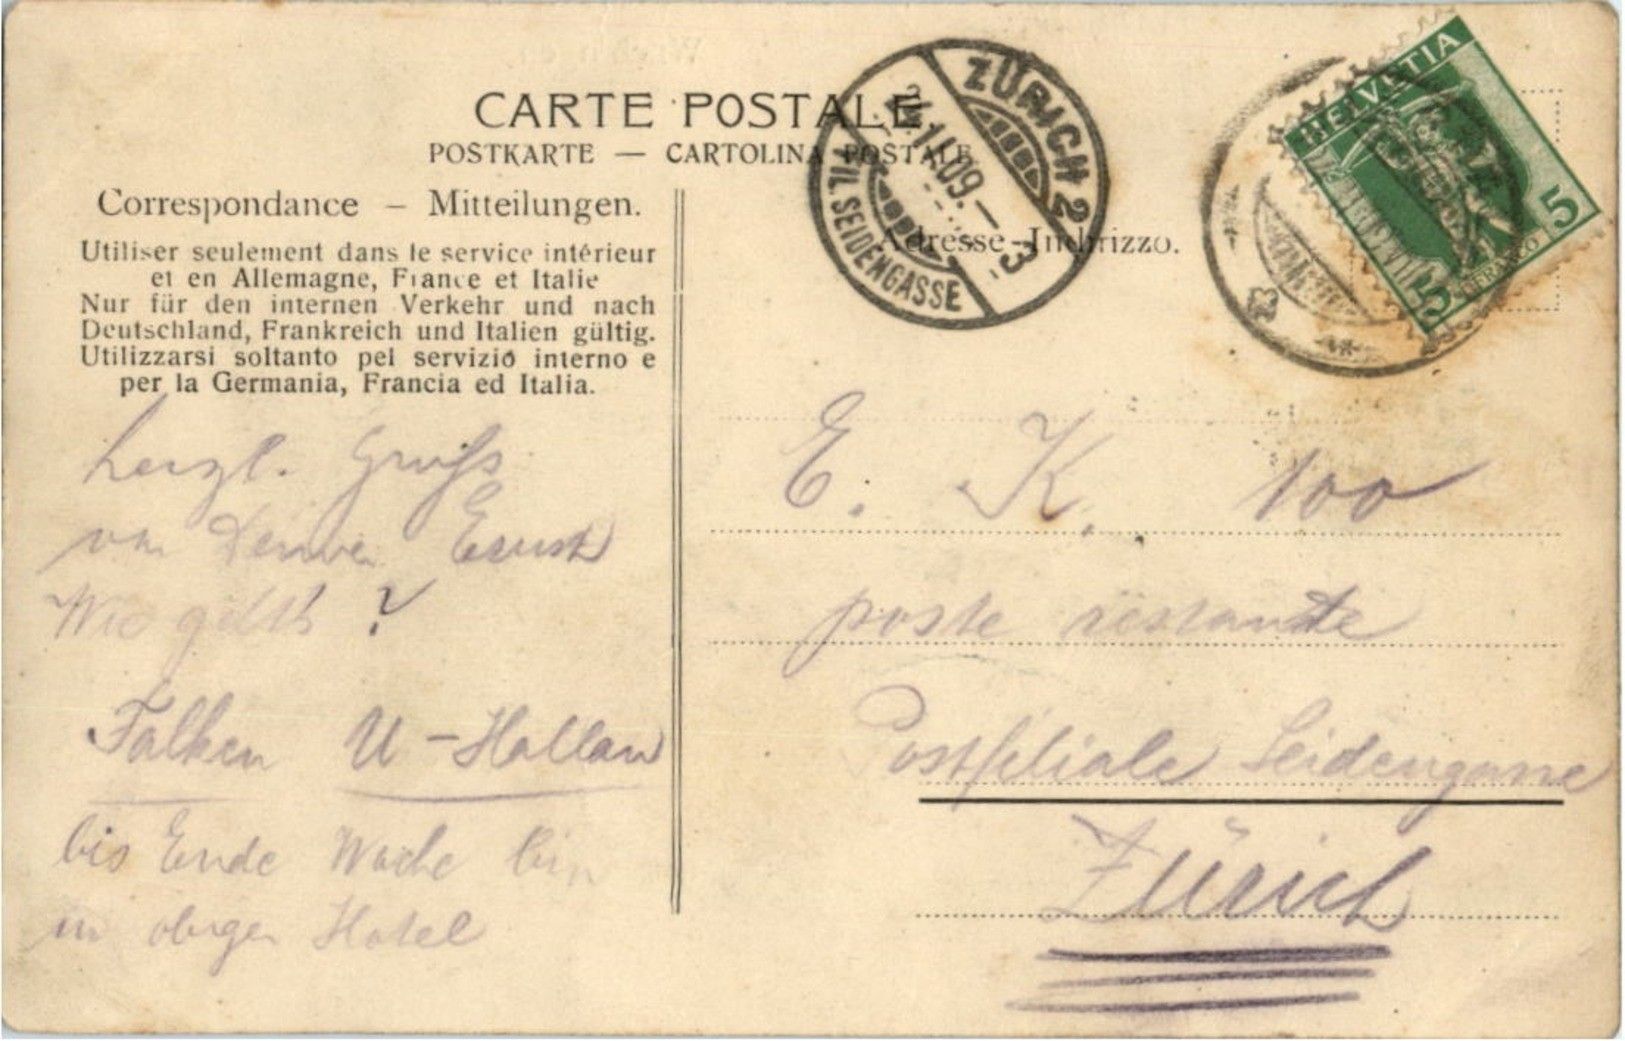 CARTE POSTALE
POSTKARTE — CARTOLINA POSTALE
Correspondance – Mitteilungen.
Utiliser seulement dans le service intérieur
et en Allemagne, France et Italie
Nur für den internen Verkehr und nach
Deutschland, Frankreich und Italien gültig.
Utilizzarsi soltanto pel servizio interno e
per la Germania, Francia ed Italia.
herzl. Gruß
von Deinem Ernst
Wie geht's ?
Falken U-Hallau
bis Ende Woche bin
in obigen Hotel
ZÜRICH 2
1109.–3
FIL. SEIDENGASSE
Adresse-Indirizzo.
HELVETIA
5
5
FRANCO
E. K. 100
poste restante
Postfiliale Seidengasse
Zürich